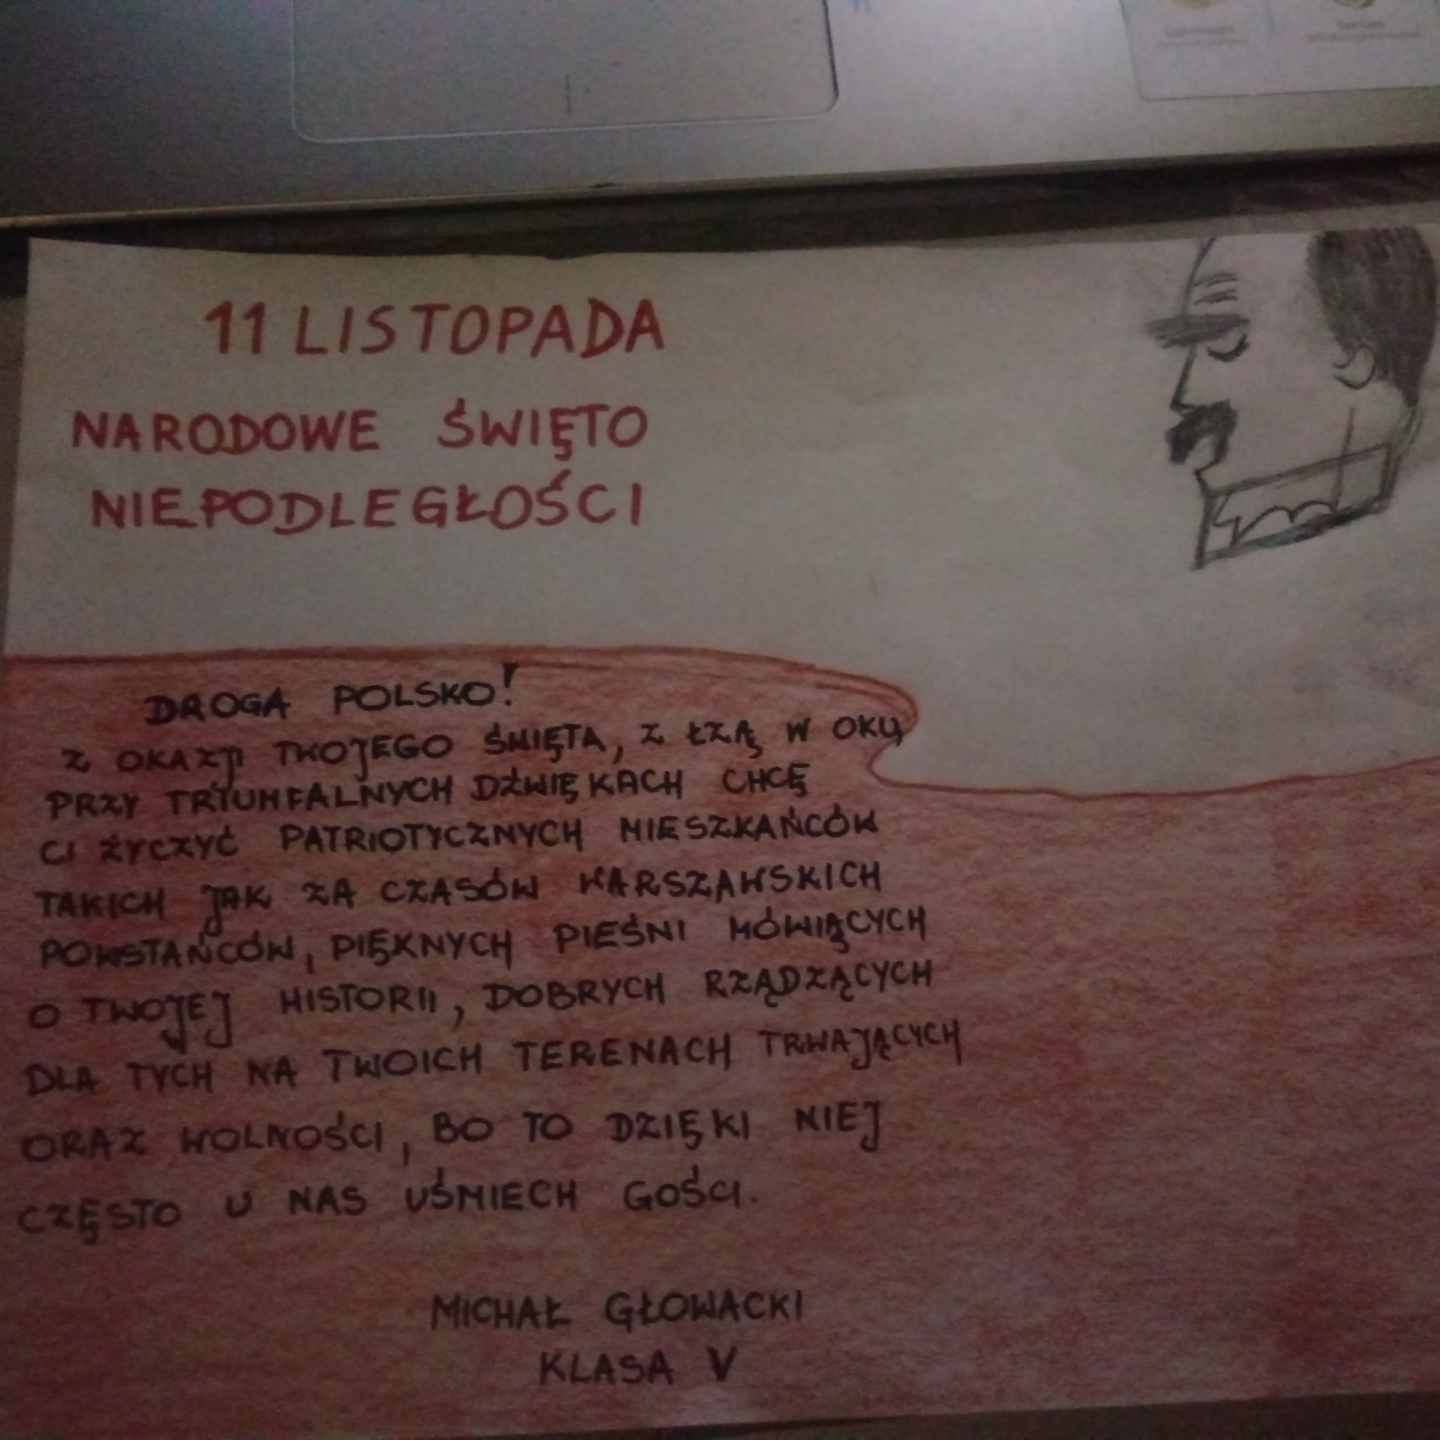 11 LISTOPADA
NARODOWE ŚWIĘTO
NIEPODLEGŁOŚCI
DROGA POLSKO!
Z OKAZJI TWOJEGO ŚWIĘTA, Z ŁZĄ W OKU
PRZY TRYUMFALNYCH DŹWIĘKACH CHCĘ
CI ŻYCZYĆ PATRIOTYCZNYCH MIESZKAŃCÓW
TAKICH JAK ZA CZASÓW WARSZAWSKICH
POWSTAŃCÓW, PIĘKNYCH PIEŚNI MÓWIĄCYCH
O TWOJEJ HISTORII, DOBRYCH RZĄDZĄCYCH
DLA TYCH NA TWOICH TERENACH TRWAJĄCYCH
ORAZ WOLNOŚCI, BO TO DZIĘKI NIEJ
CZĘSTO U NAS UŚMIECH GOŚCI.
MICHAŁ GŁOWACKI
KLASA V